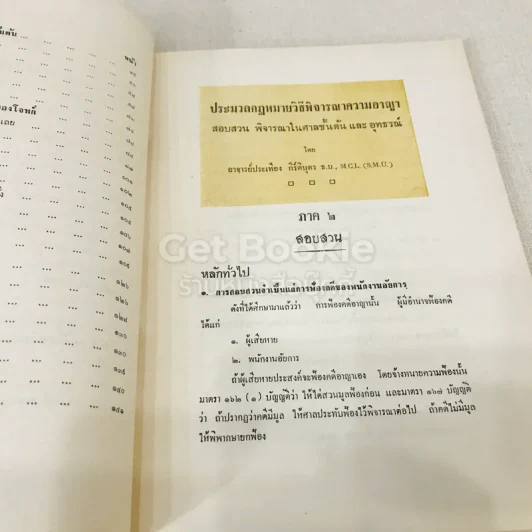 หน้า
องโจทก์
๑๐๒
๑๐๕
๑๒๑
๑๒๖
๑๓๐
๑๓๖
๑๔๐
๑๔๑
ประมวลกฎหมายวิธีพิจารณาความอาญา
สอบสวน พิจารณาในศาลชั้นต้น และ อุทธรณ์
โดย
อาจารย์ประเทือง กีรติบุตร ธ.บ., M.C.L. (S.M.U.)
ภาค ๒
สอบสวน
Get Bookie
ร้านหนังสือกุ๊กกี้
หลักทั่วไป
๑. การสอบสวนจำเป็นแก่การฟ้องคดีของพนักงานอัยการ
ดังที่ได้ศึกษามาแล้วว่า การฟ้องคดีอาญานั้น ผู้มีอำนาจฟ้องคดี
ได้แก่
๑. ผู้เสียหาย
๒. พนักงานอัยการ
ถ้าผู้เสียหายประสงค์จะฟ้องคดีอาญาเอง โดยจ้างทนายความฟ้องนั้น
มาตรา ๑๖๒ (๑) บัญญัติว่า ให้ไต่สวนมูลฟ้องก่อน และมาตรา ๑๖๗ บัญญัติ
ว่า ถ้าปรากฏว่าคดีมีมูล ให้ศาลประทับฟ้องไว้พิจารณาต่อไป ถ้าคดีไม่มีมูล
ให้พิพากษายกฟ้อง